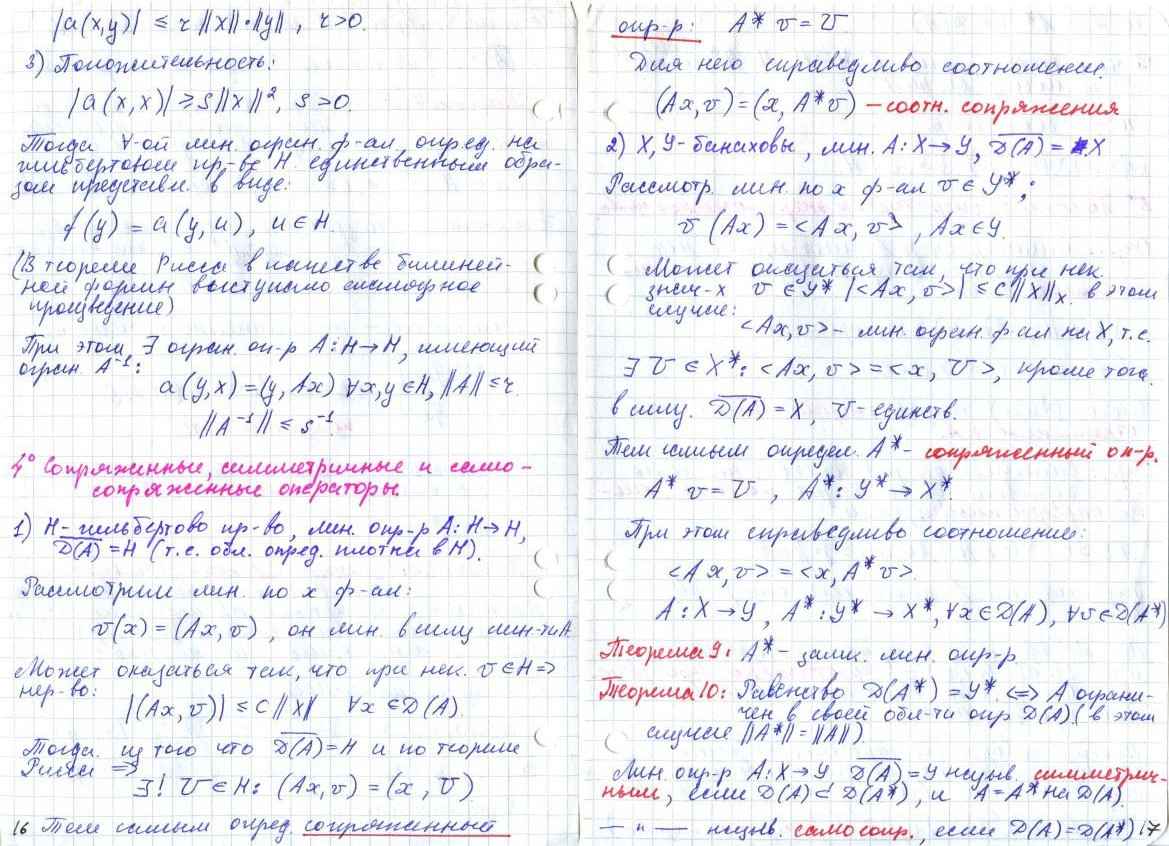 |a(x,y)| ≤ r ||x||·||y||, r>0.
3) Положительность:
|a(x,x)| ≥ s||x||², s>0.
Тогда ∀-ой лин. огран. ф-ал, опред. на
гильбертовом пр-ве H единственным обра-
зом представл. в виде:
f(y) = a(y,u), u ∈ H.
(В теореме Рисса в качестве билиней-
ной формы выступало скалярное
произведение)
При этом, ∃ огран. оп-р A: H→H, имеющий
огран A⁻¹:
a(y,x) = (y, Ax) ∀x,y ∈ H, ||A|| ≤ r.
||A⁻¹|| ≤ s⁻¹.
4° Сопряженные, симметричные и само-
сопряженные операторы.
1) H - гильбертово пр-во, лин. опр-р A: H→H,
D̅(̅A̅)̅ = H (т.е. обл. опред. плотна в H).
Рассмотрим лин. по x ф-ал:
v(x) = (Ax, v), он лин. в силу лин-ти A
Может оказаться так, что при нек. v ∈ H =>
нер-во:
|(Ax, v)| ≤ C ||x|| ∀x ∈ D(A).
Тогда из того что D̅(̅A̅)̅ = H и по теореме
Рисса =>
∃! V ∈ H: (Ax, v) = (x, V)
16 Тем самым опред. сопряженный
опр-р: A* v = V
Для него справедливо соотношение.
(Ax, v) = (x, A* v) – соотн. сопряжения
2) X, Y - банаховы, лин. A: X→Y, D̅(̅A̅)̅ = X
Рассмотр. лин. по x ф-ал v ∈ Y*;
v(Ax) = <Ax, v>, Ax ∈ Y.
Может оказаться так, что при нек.
знач-х v ∈ Y* |<Ax, v>| ≤ C||X||ₓ в этом
случае:
<Ax, v> – лин. огран. ф-ал на X, т.е.
∃ V ∈ X*: <Ax, v> = <x, V>, кроме того.
в силу. D̅(̅A̅)̅ = X, V - единств.
Тем самым определ. A* - сопряженный оп-р.
A* v = V, A*: Y* → X*.
При этом справедливо соотношение:
<Ax, v> = <x, A* v>.
A: X→Y, A*: Y* → X*, ∀x ∈ D(A), ∀v ∈ D(A*)
Теорема 9: A* - замк. лин. опр-р
Теорема 10: Равенство D(A*) = Y* <=> A ограни-
чен в своей обл-ти опр D(A) (в этом
случае ||A*|| = ||A||).
Лин. опр-р A: X→Y, D̅(̅A̅)̅ = Y назыв. симметрич-
ным, если D(A) ⊂ D(A*), и A = A* на D(A).
— " — назыв. самосопр., если D(A) = D(A*) 17